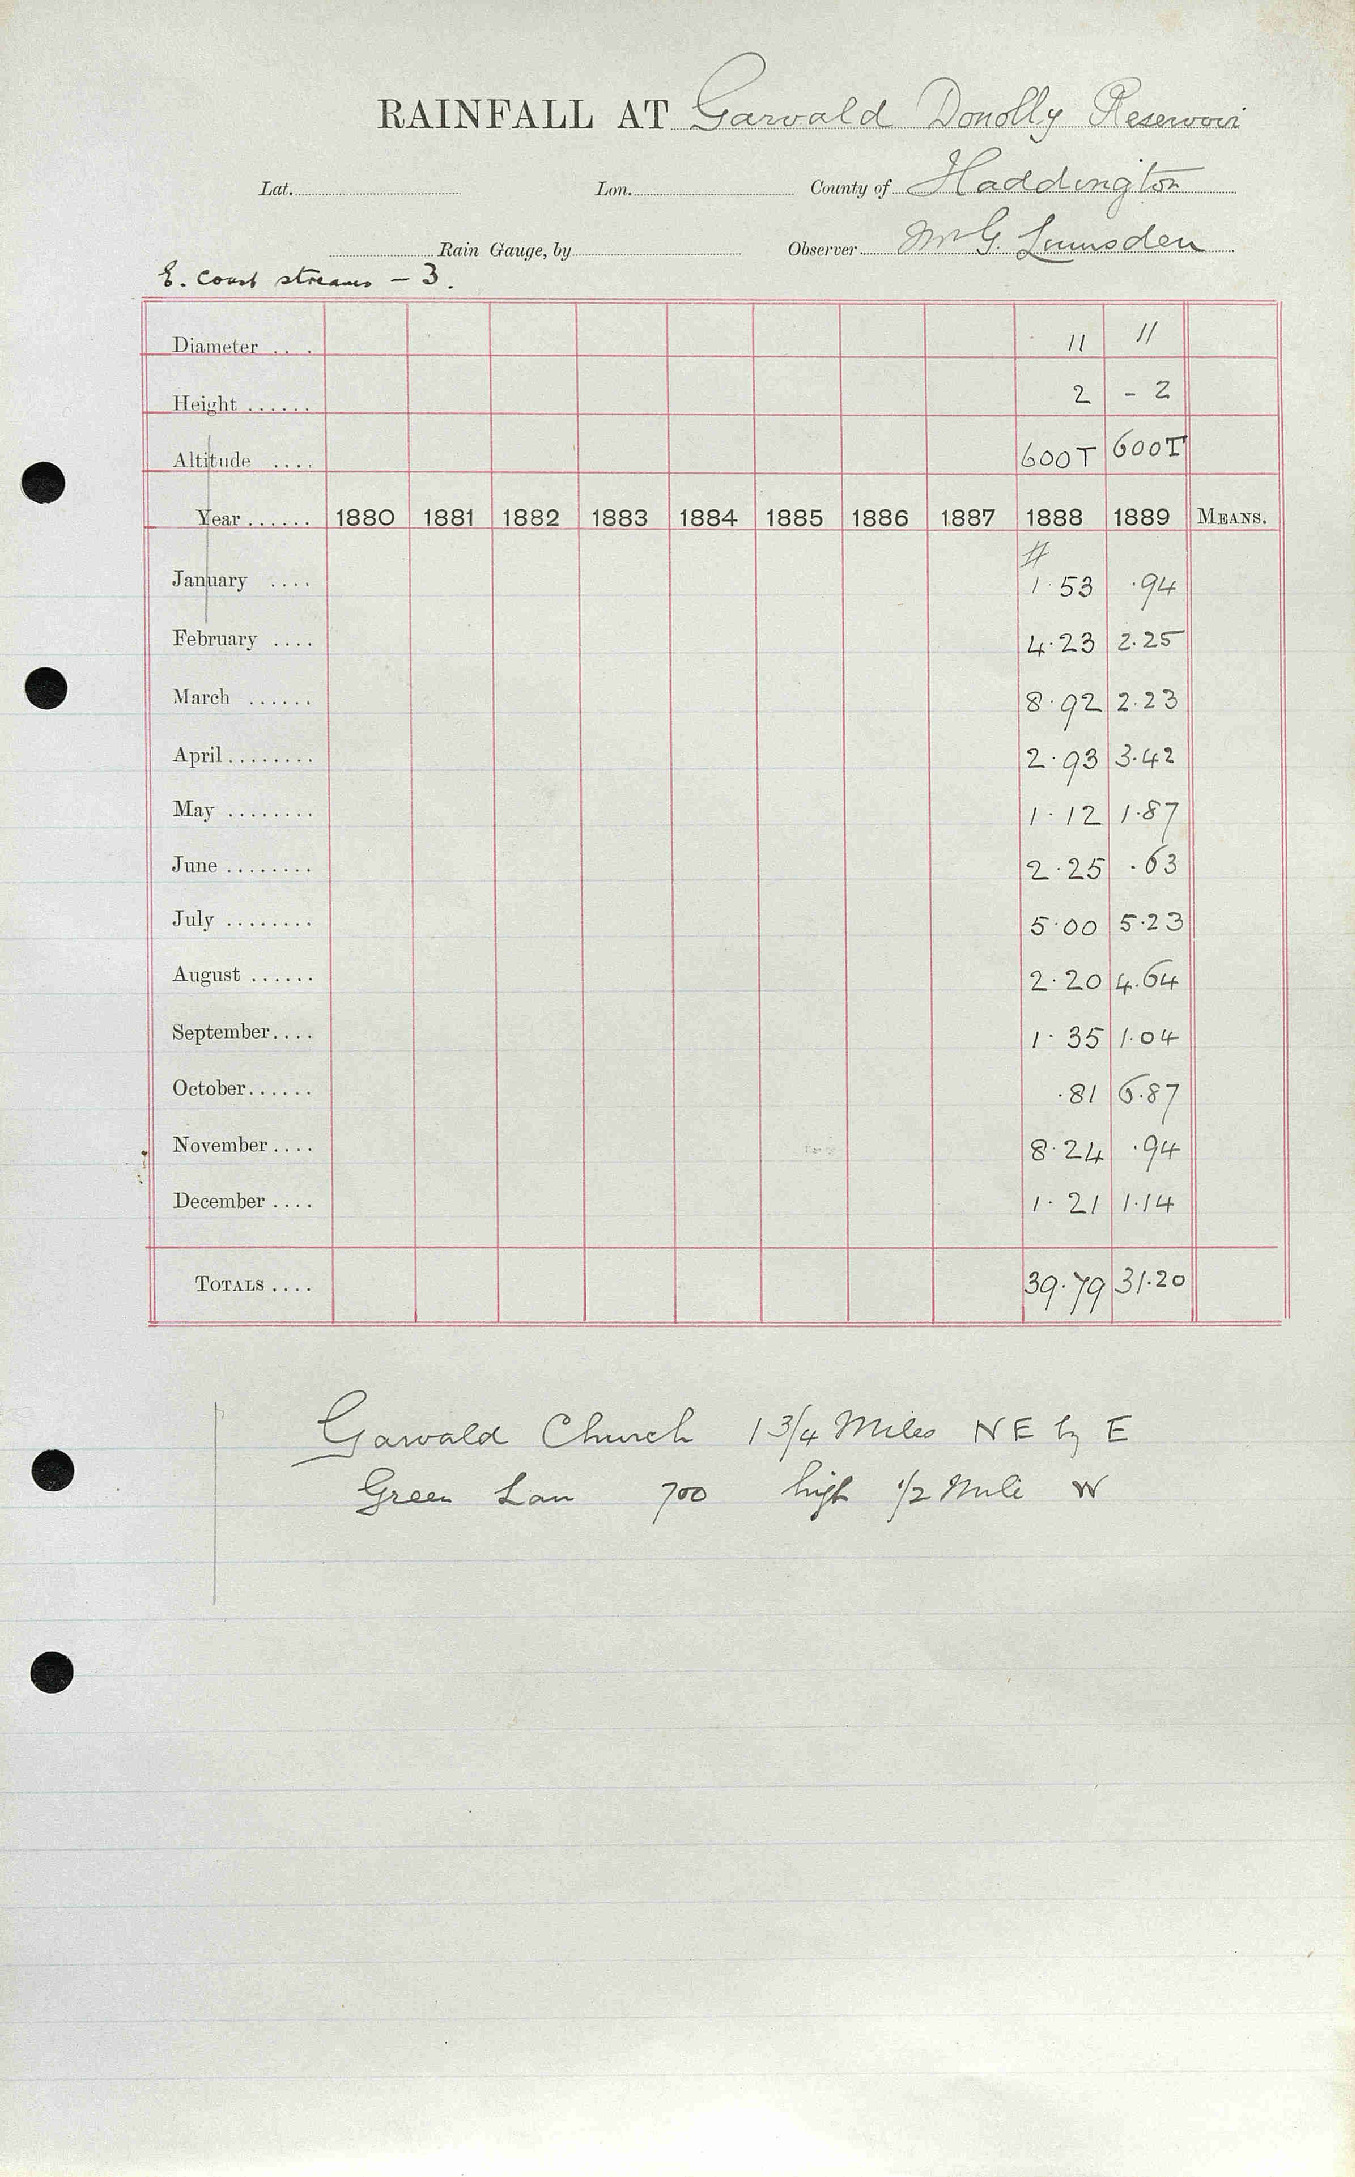 RAINFALL AT Garvald Donolly Reservoir
Lat. Lon. County of Haddington
Rain Gauge, by Observer Mr G. Lumsden
E. Coast streams - 3.
Diameter .... 11 11
Height ...... 2 - 2
Altitude .... 600T 600T
Year ...... 1880 1881 1882 1883 1884 1885 1886 1887 1888 1889 MEANS.
#
January .... 1.53 .94
February .... 4.23 2.25
March ...... 8.92 2.23
April ........ 2.93 3.42
May ........ 1.12 1.87
June ........ 2.25 .63
July ........ 5.00 5.23
August ...... 2.20 4.64
September.... 1.35 1.04
October...... .81 6.87
November.... 8.24 .94
December .... 1.21 1.14
TOTALS .... 39.79 31.20
Garvald Church 1 3/4 Miles NE by E
Green Law 700 high 1/2 Mile W